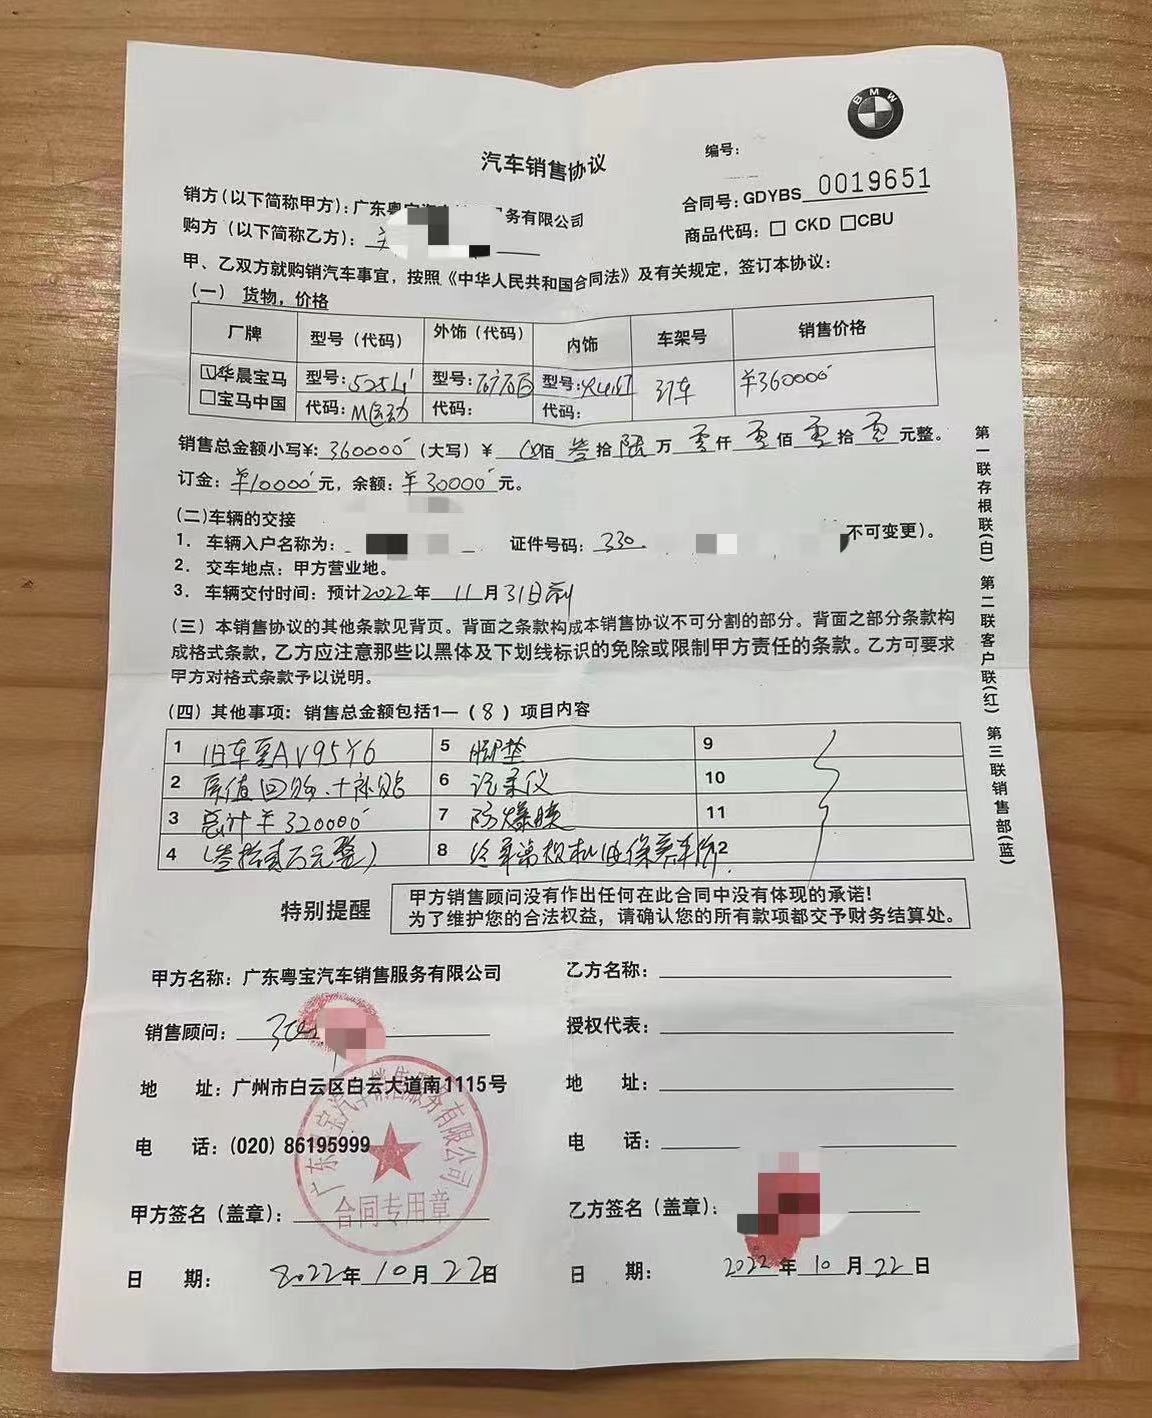 BMW
汽车销售协议
编号:
销方(以下简称甲方):广东粤宝汽 服务有限公司
合同号:GDYBS 0019651
购方(以下简称乙方):
商品代码:□ CKD □CBU
甲、乙双方就购销汽车事宜,按照《中华人民共和国合同法》及有关规定,签订本协议:
(一) 货物,价格
厂牌 型号(代码) 外饰(代码) 内饰 车架号 销售价格
☑华晨宝马 型号:525Li 型号:矿石白 型号: 订车 ¥360000
□宝马中国 代码:M运动 代码: 代码:
销售总金额小写¥: 360000 (大写)¥ 佰 叁 拾 陆 万 零 仟 零 佰 零 拾 零 元整。
订金:¥10000元,余额:¥30000元。
(二)车辆的交接
1. 车辆入户名称为: 证件号码:330 不可变更)。
2. 交车地点:甲方营业地。
3. 车辆交付时间:预计2022年 11 月 31日前
(三)本销售协议的其他条款见背页。背面之条款构成本销售协议不可分割的部分。背面之部分条款构
成格式条款,乙方应注意那些以黑体及下划线标识的免除或限制甲方责任的条款。乙方可要求
甲方对格式条款予以说明。
(四)其他事项:销售总金额包括1—(8)项目内容
1 旧车粤AV95Y6 5 脚垫 9
2 原值回购+补贴 6 记录仪 10
3 总计¥320000 7 防爆膜 11
4 (叁拾贰万元整) 8 保养 12
特别提醒
甲方销售顾问没有作出任何在此合同中没有体现的承诺!
为了维护您的合法权益,请确认您的所有款项都交予财务结算处。
第一联存根联(白) 第二联客户联(红) 第三联销售部(蓝)
甲方名称:广东粤宝汽车销售服务有限公司
乙方名称:
销售顾问:
授权代表:
地 址:广州市白云区白云大道南1115号
地 址:
电 话:(020)86195999
电 话:
广东粤宝汽车销售服务有限公司
合同专用章
甲方签名(盖章):
乙方签名(盖章):
日 期: 2022年10月22日
日 期: 2022年10月22日